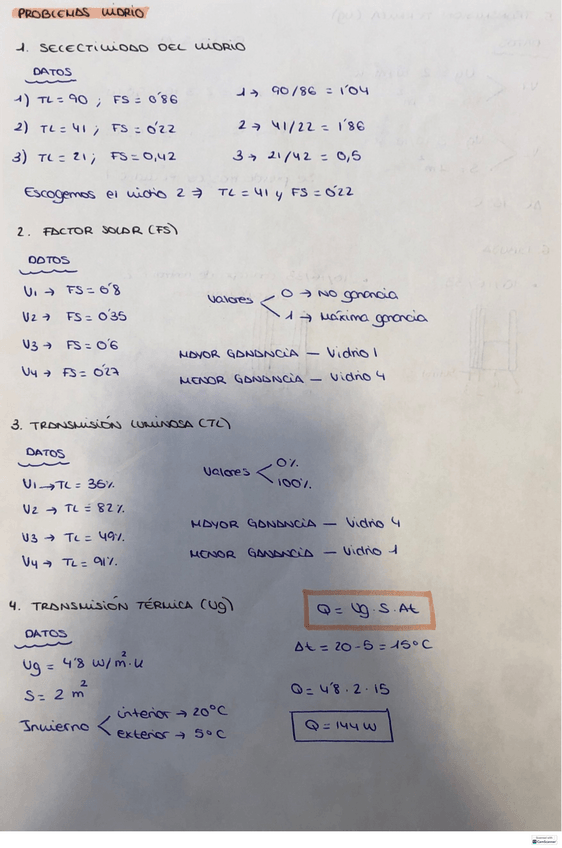 PROBLEMAS VIDRIO
1. SELECTIVIDAD DEL VIDRIO
DATOS
1) TL = 90 ; FS = 0'86
1 → 90/86 = 1'04
2) TL = 41 ; FS = 0'22
2 → 41/22 = 1'86
3) TL = 21 ; FS = 0,42
3 → 21/42 = 0,5
Escogemos el vidrio 2 ⇒ TL = 41 y FS = 0'22
2. FACTOR SOLAR (FS)
DATOS
V1 → FS = 0'8
V2 → FS = 0'35
V3 → FS = 0'6
V4 → FS = 0'27
Valores
0 → NO ganancia
1 → Máxima ganancia
MAYOR GANANCIA — Vidrio 1
MENOR GANANCIA — Vidrio 4
3. TRANSMISIÓN LUMINOSA (TL)
DATOS
V1 → TL = 36%
V2 → TL = 82%
V3 → TL = 49%
V4 → TL = 91%
Valores
0%
100%
MAYOR GANANCIA — Vidrio 4
MENOR GANANCIA — Vidrio 1
4. TRANSMISIÓN TÉRMICA (Ug)
Q = Ug · S · Δt
DATOS
Δt = 20 - 5 = 15°C
Ug = 4'8 W/m²·K
S = 2 m²
Q = 4'8 · 2 · 15
Invierno
interior → 20°C
exterior → 5°C
Q = 144 W
CamScanner